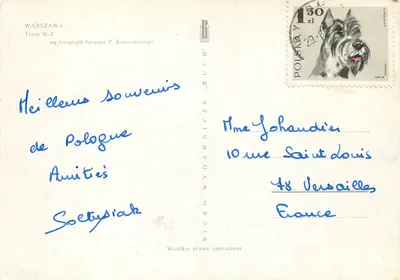 WARSZAWA
Trasa W-Z
wg fotografii barwnej P. Krassowskiego
Meilleurs souvenirs
de Pologne
Amitiés
Sołtysiak
BIURO WYDAWNICZE "RUCH"
1.50 zł
POLSKA
Mme Johandier
10 rue Saint Louis
78 Versailles
France
Wszelkie prawa zastrzeżone